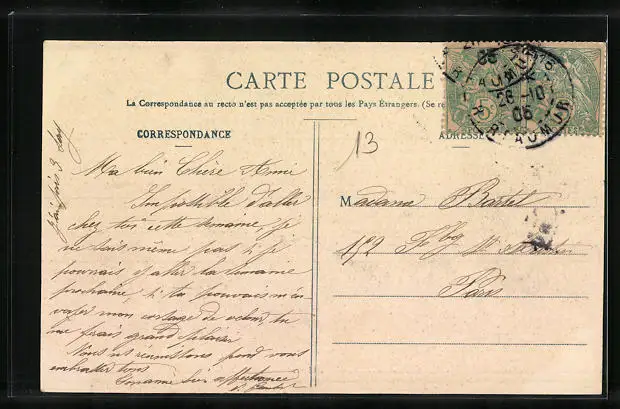 CARTE POSTALE
La Correspondance au recto n'est pas acceptée par tous les Pays Étrangers. (Se re
CORRESPONDANCE
ADRESSE
13
REAUMUR
26-10
06
Ma bien Chère Amie
Impossible d'aller
chez toi cette semaine, je
ne sais même pas si je
pourrais y aller la semaine
prochaine, si tu pouvais m'en
voyer mon corsage de velours, tu
me ferais grand plaisir
Nous nous réunissons pour vous
embrasser tous
Ton amie bien affectionnée
Madame Bartet
152 Fbg St
Paris